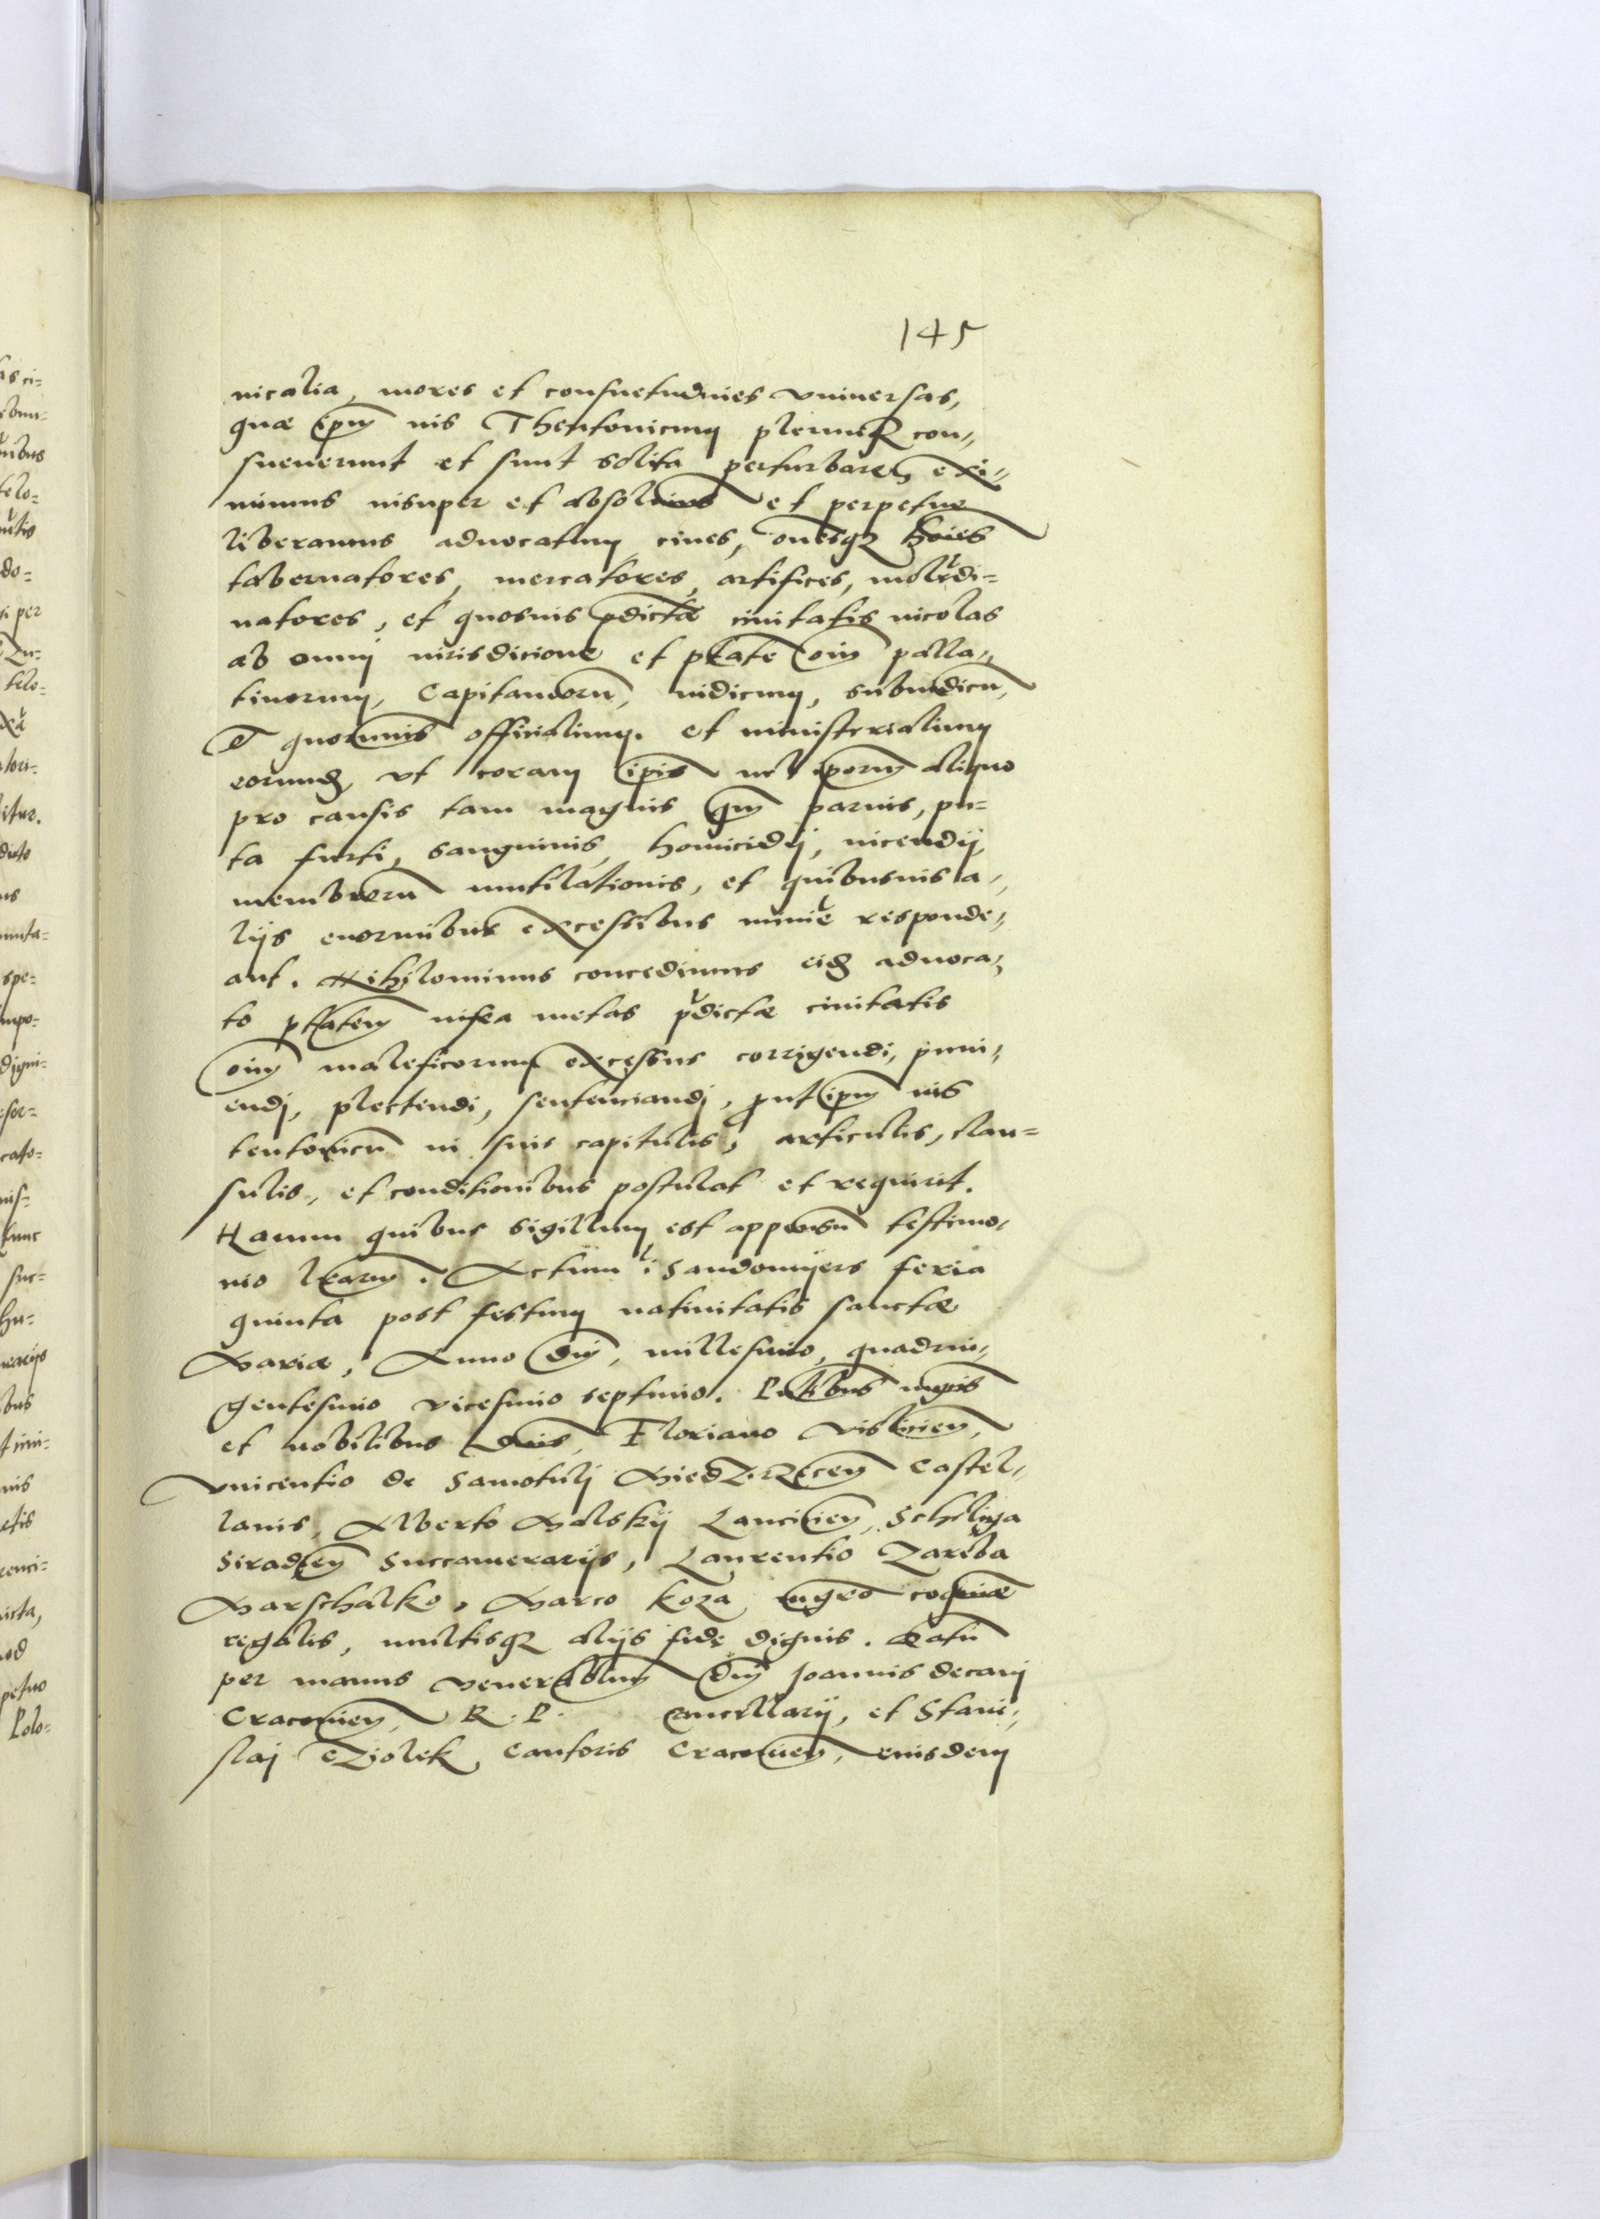 145
nicalia, mores et consuetudines vniuersas,
quae ipm ius Theutonicum plerumq con-
sueuerunt et sunt solita perturbare, exi-
mimus insuper et absoluimus et perpetue
liberamus aduocatum ciues, omesq hoies
tabernatores, mercatores, artifices, molendi-
natores, et quosuis pdictae ciuitatis incolas
ab omni iurisdicione et ptate oim palla-
tinorum, Capitaneoru, iudicum, subiudicu,
Et quorumuis officialium. et ministerialium
eorumd, vt coram ipis uel iporum aliquo
pro causis tam magnis qm paruis, pu-
ta furti, sanguinis, homicidij, incendij
membroru mutilationis, et quibusuis a-
lijs enormibus excessibus minie responde-
ant. Nihilominus concedimus eid aduoca-
to ptatem infra metas pdictae ciuitatis
oim maleficorum excessus corrigendi, puni-
endi, plectendi, sentenciandi, put ipm ius
teutonicu in suis capitulis, articulis, clau-
sulis, et conditionibus postulat et requirit.
Harum quibus sigillum est appensu testimo-
nio lrarum. Actum i Sandomijers feria
quinta post festum natiuitatis sanctae
Mariae, Anno Dni, millesimo, quadrin-
gentesimo vicesimo septimo. Pntibus mgcis
et nobilibus Dnis, Floriano Vislicien,
Vincentio de Samotuli Miedzirzecen Castel-
lanis, Alberto Malskij Lancicien, Schiliga
Siradien Succamerarijs, Laurentio Zareba
Marschalko, Marco Koza mgro coquinae
regalis, multisq alijs fide dignis. Datu
per manus venerabilium Dni Joannis decani
Cracouien, R. P. Cancellarij, et Stani-
slaj Cziolek Cantoris Cracouien, eiusdem